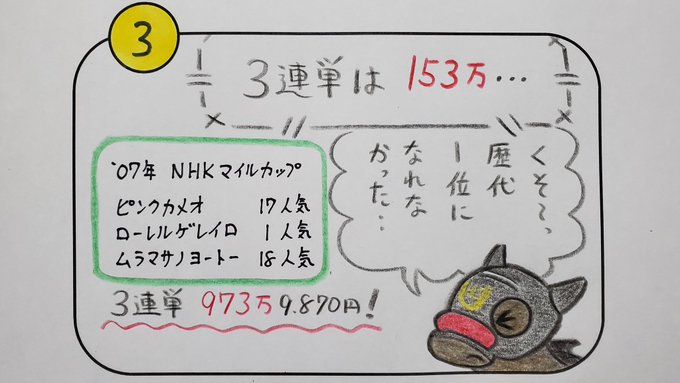 3
3連単は 153万…
くそ〜っ
歴代
1位に
なれな
かった…
'07年 NHKマイルカップ
ピンクカメオ 17人気
ローレルゲレイロ 1人気
ムラマサノヨートー 18人気
3連単 973万9.870円!